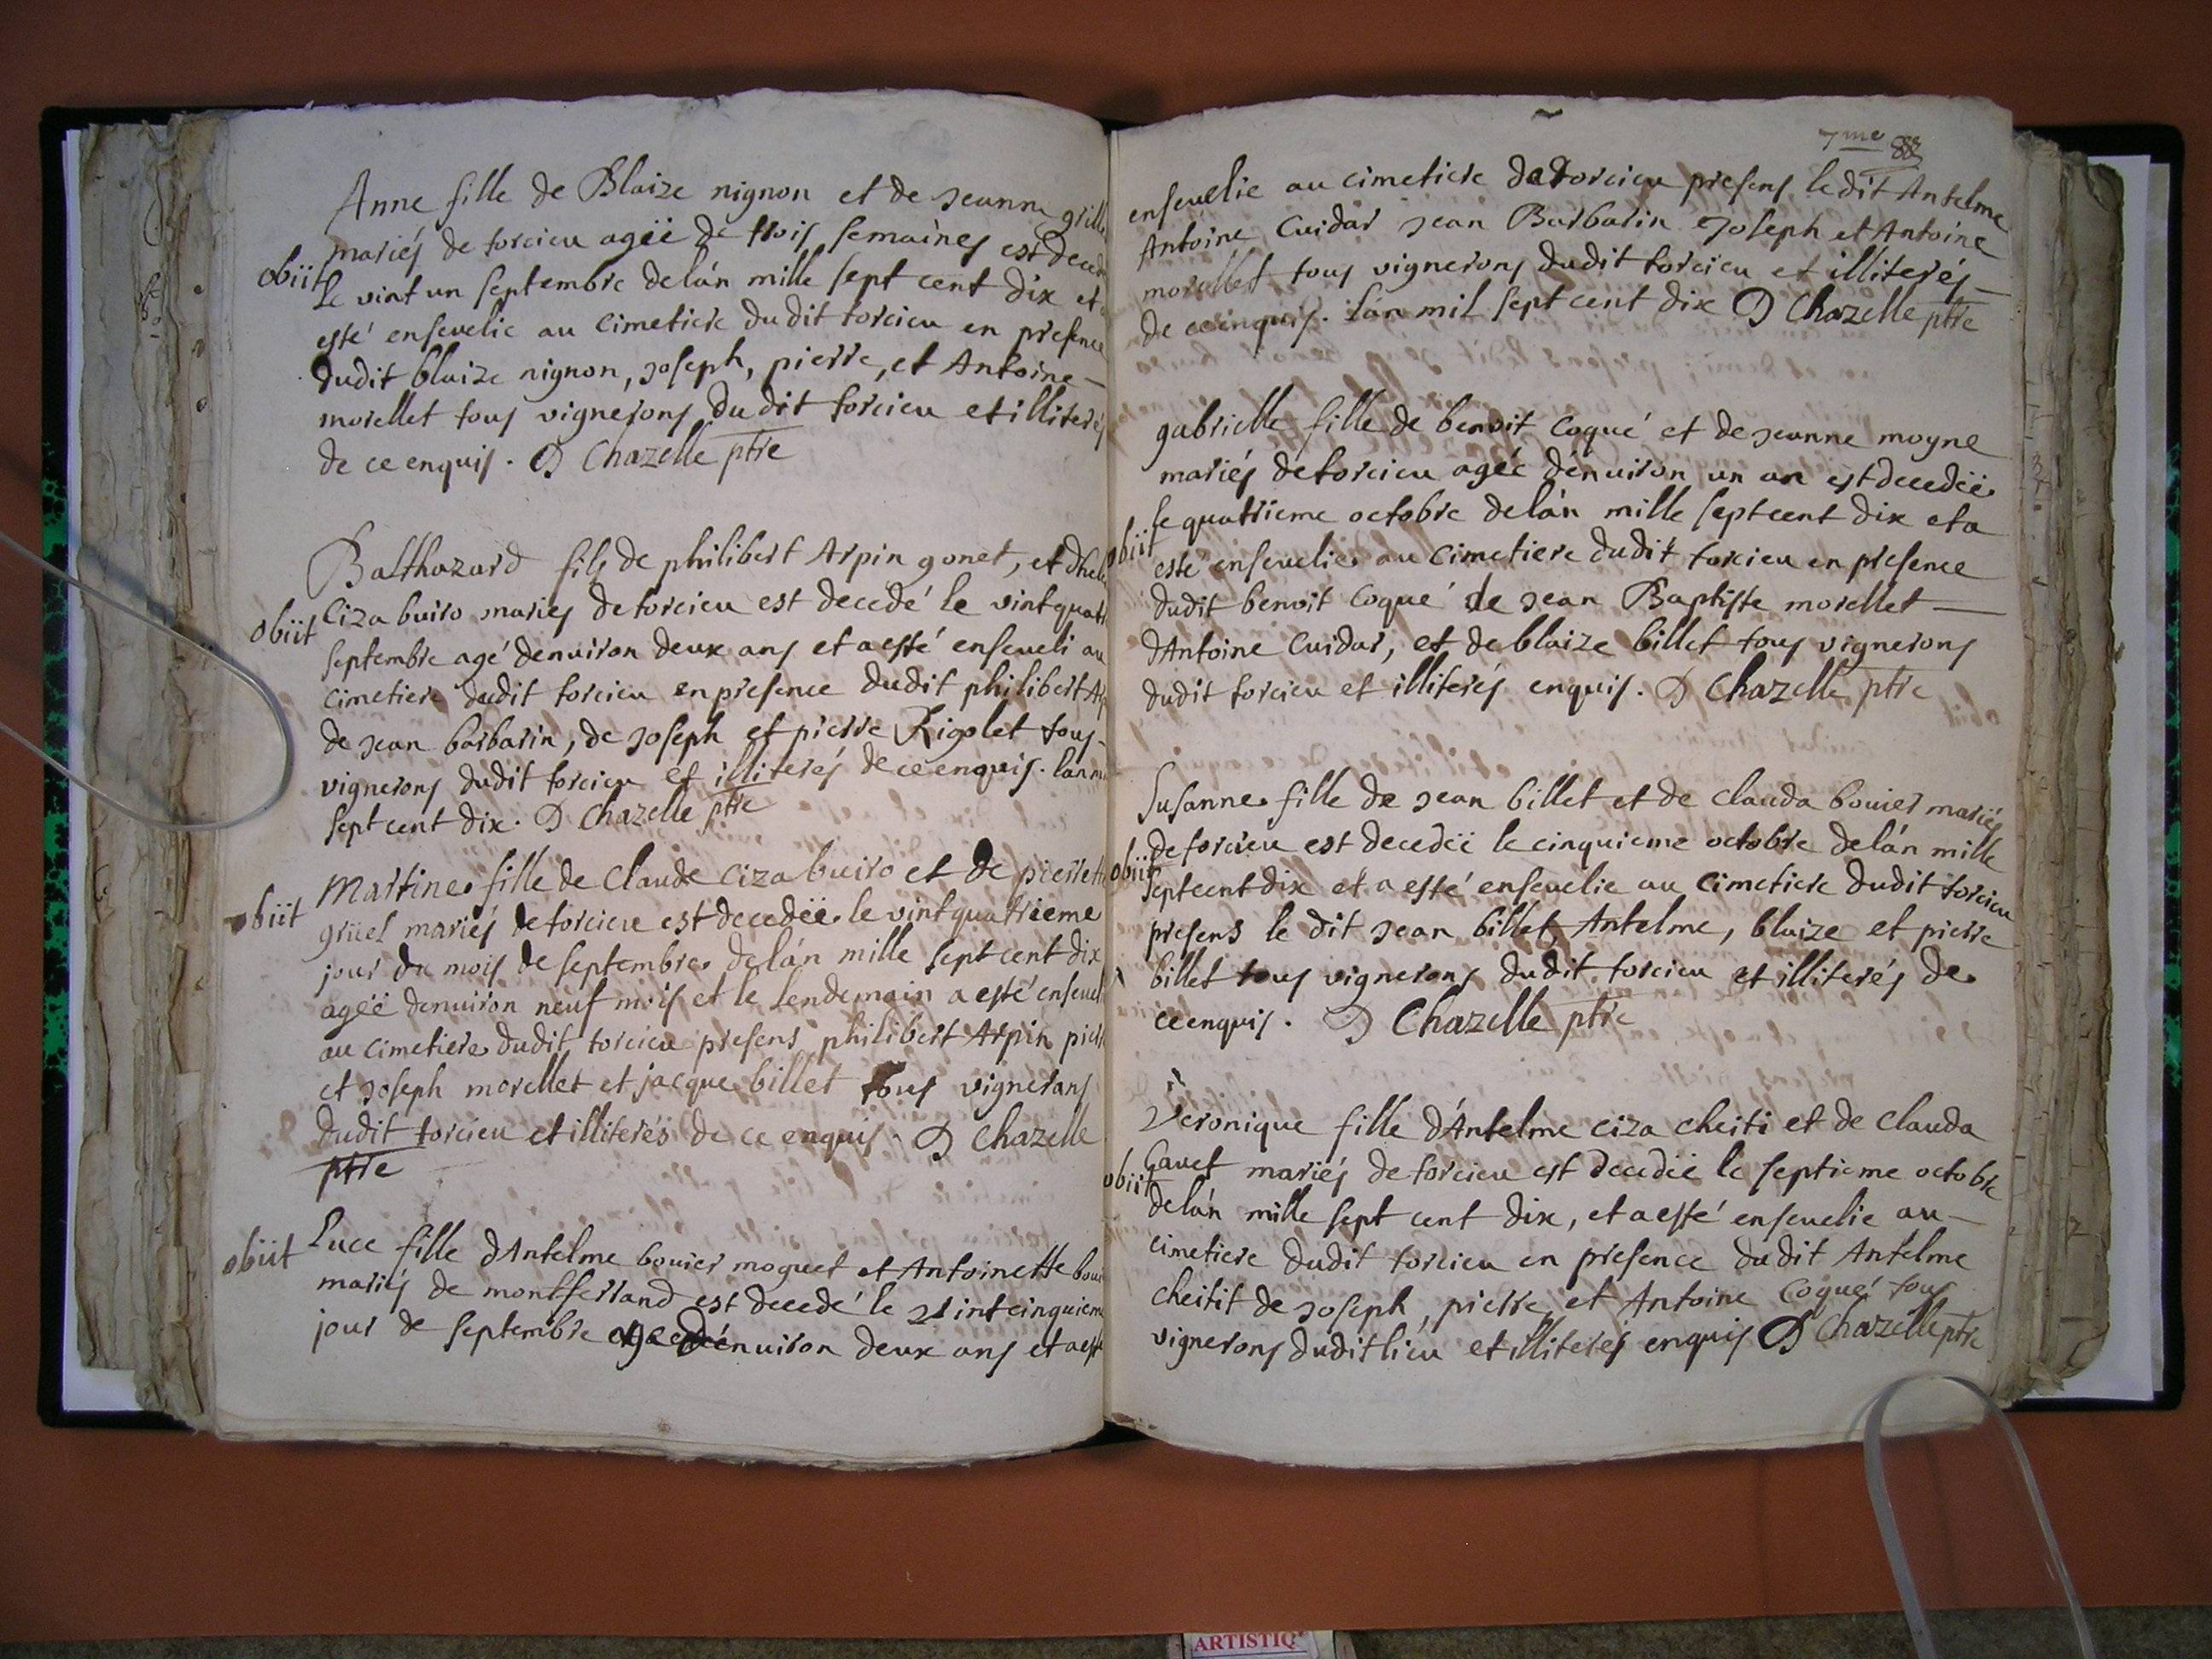 Anne fille de Blaize nignon et de Jeanne grille
mariés de torcieu ageë de trois semaines est deced
obiit
le vint un septembre delán mille sept cent dix et
esté ensevelie au cimetiere du dit torcieu en presence
dudit blaize nignon, Joseph, pierre, et Antoine
morellet tous vignerons du dit torcieu et illiterés
de ce enquis. D Chazelle ptre
Balthazard fils de philibert Arpin gonet, et
obiit
Ciza buiro mariés de torcieu est decedé le vintquatr
septembre agé denuiron deux ans et a esté enseueli au
cimetiere dudit torcieu en presence dudit philibert Ar
de Jean barbarin, de Joseph et pierre Rigolet tous
vignerons dudit torcieu et illiterés de ce enquis. lan m
sept cent dix. D Chazelle ptre
obiit
Martine fille de Claude Ciza buiro et de pierrette
grüel mariés de torcieu est decedeë le vintquatrieme
jour du mois de septembre delán mille sept cent dix
ageë denuiron neuf mois et le lendemain a esté enseuel
au cimetiere dudit torcieu presens philibert Arpin pierr
et Joseph morellet et jacque billet tous vignerons
dudit torcieu et illiterés de ce enquis. D Chazelle
ptre
obiit
Luce fille dAntelme bouier moguet et Antoinette boui
mariés de montferrand est decedé le 21int cinquieme
jour de septembre agee dénuiron deux ans et a esté
7me 88
enseuelie au cimetiere de torcieu presens le dit Antelme
Antoine Cuidar Jean Barbarin Joseph et Antoine
morellet tous vignerons dudit torcieu et illiterés
de ce enquis. lán mil sept cent dix D Chazelle ptre
gabrielle fille de benoit Coqué et de Jeanne moyne
mariés de torcieu agéc dénuiron un an est decedeë
le quatrieme octobre delán mille sept cent dix et a
obiit
esté enseuelie au cimetiere dudit torcieu en presence
dudit benoit Coqué de Jean Baptiste morellet
dAntoine Cuidar, et de blaize billet tous vignerons
dudit torcieu et illiterés enquis. D Chazelle ptre
Susanne fille de Jean billet et de Clauda bouier mariés
de torcieu est decedeë le cinquieme octobre delán mille
obiit
sept cent dix et a esté enseuelie au Cimetiere dudit torcieu
presens le dit Jean billet, Antelme, blaize et pierre
billet tous vignerons dudit torcieu et illiterés de
ce enquis. D Chazelle ptre
Veronique fille dÁntelme Ciza Cheiti et de Clauda
Gauet mariés de torcieu est decedeë le septieme octobre
obiit
delán mille sept cent dix, et a esté enseuelie au
cimetiere dudit torcieu en presence dudit Antelme
cheitit de Joseph, pierre, et Antoine Coqué tous
vignerons dudit lieu et illiterés enquis D Chazelle ptre
ARTISTIQ